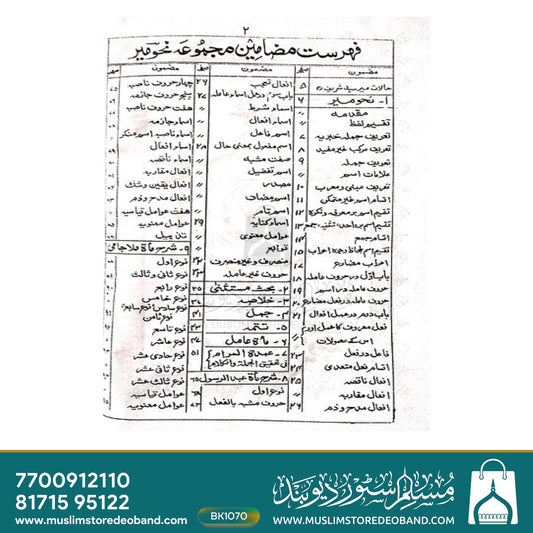 ۲
فهرست مضامین مجموعہ نحومیر
مضمون صفحہ
حالات میر سید شریف رہ ۵
۱- نحومیر ۶
مقدمہ
تقسیم لفظ
تعریف جملہ خبریہ ۷
تعریف مرکب غیر مفید ۸
تعریف جملہ ۹
علامات اسم 〃
تعریف مبنی و معرب ۱۰
اقسام اسم غیر متمکن ۱۱
تقسیم اسم بر معرفہ و نکرہ ۱۲
تقسیم اسم بر واحد، تثنیہ، جمع ۱۳
اقسام جمع ۱۴
اعراب مضارع
باب اول در حروف عاملہ ۱۸
حروف عاملہ در اسم ۱۹
حروف عاملہ در فعل مضارع ۲۰
باب دوم در عمل افعال ۲۱
فاعل و فعل ۲۳
اقسام فعل متعدی ۲۴
افعال ناقصہ ۲۵
افعال مقاربہ 〃
افعال مدح و ذم ۲۶
مضمون صفحہ
افعال تعجب ۲۶
باب سوم در عمل اسماء عاملہ ۲۷
اسماء شرط 〃
اسماء افعال 〃
اسم فاعل 〃
اسم مفعول بمعنی حال ۲۸
صفت مشبہ 〃
اسم تفضیل 〃
مصدر 〃
اسم مضاف 〃
اسم تام 〃
اسماء کنایہ ۲۹
عوامل معنوی 〃
توابع 〃
منصرف و غیر منصرف
حروف غیر عاملہ ۳۳
۲- بحث مستثنیٰ ۳۵
۳- خلاصہ ۳۷
۴- جمل
۵- تتمہ ۴۳
۶- مأۃ عامل
۷- عمدۃ المرام فی تحقیق الجملۃ والکلام ۵۱
۸- شرح مأۃ عبد الرسول ۶۵
نوع اول ۶۸
حروف مشبہ بالفعل ۷۳
مضمون صفحہ
چہار حروف ناصبہ
پنج حروف جازمہ
ہفت حروف ناصبہ
اسماء جازمہ
اسماء ناصبہ اسم منکر
اسماء افعال
افعال ناقصہ
افعال مقاربہ
افعال یقین و شک
افعال مدح و ذم
ہفت عوامل قیاسیہ
عوامل معنویہ
۹- شرح مأۃ ملا جامی
نوع اول
نوع ثانی و ثالث
نوع رابع
نوع خامس
نوع سادس نوع سابع
نوع ثامن
نوع تاسع
نوع عاشر
نوع حادی عشر
نوع ثانی عشر
نوع ثالث عشر
عوامل قیاسیہ
عوامل معنویہ
7700912110
81715 95122
www.muslimstoredeoband.com
BK1070
مسلم سٹور دیوبند
WWW.MUSLIMSTOREDEOBAND.COM